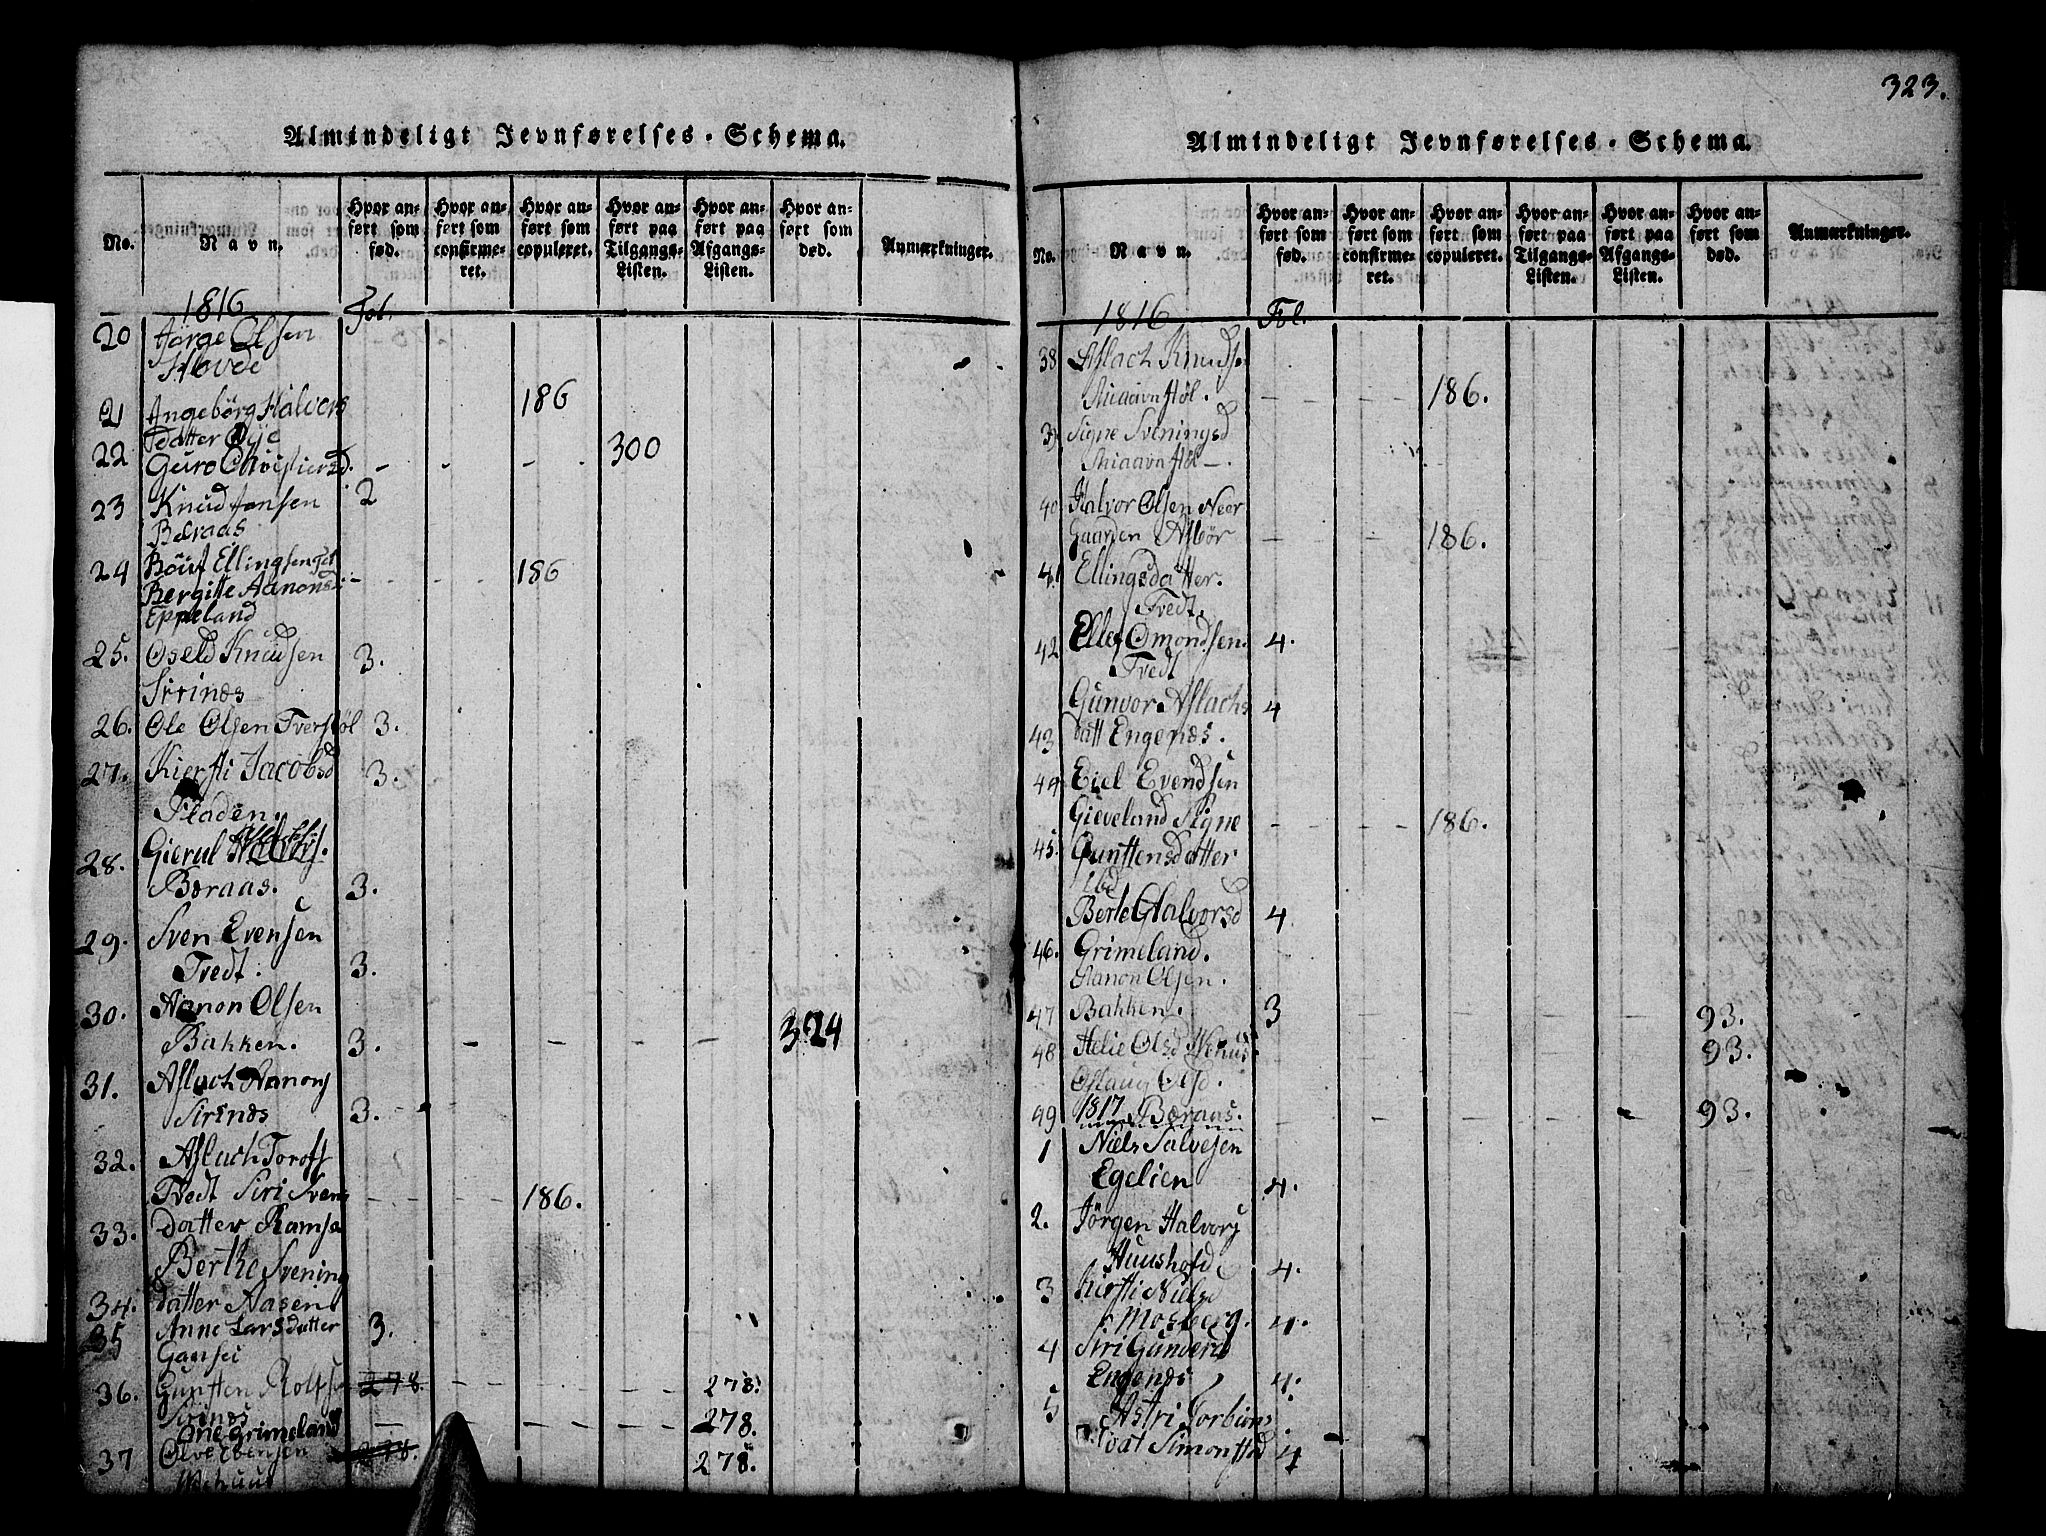 323.
Almindeligt Jevnførelses-Schema.
No.
Navn.
Hvor anført som fød.
Hvor anført som confirmeret.
Hvor anført som copuleret.
Hvor anført paa Tilgangs-Listen.
Hvor anført paa Afgangs-Listen.
Hvor anført som død.
Anmærkninger.
1816 Fol.
20 Jørge Olsen
Hovde
21 Angebörg Halvors 186
Datter Øÿe
22 Guro Christiersd. - - - 300
23 Knud Jensen 2
Bæraas
24 Ellingsen
Bergitte Aanonsd: - - - 186
Eppeland
25. Oseld Knudsen 3.
Sirines
26. Ole Olsen Tverstøl 3.
27. Kiersti Jacobsd 3.
Fladen.
28. Gierul
Bæraas. 3.
29. Sven Evensen
Tvedt. 3.
30. Aanon Olsen
Bakken. 3. - - - - 324
31. Aslach Aanons
Sirines 3.
32. Aslach Torofs
Tvedt Siri Svens - - - 186.
33. Datter Ramse
Berthe Svenings
34. Datter Aasen
35 Anne Larsdatter 3.
36. Gunsten Rolfsen 278. - - - 278.
Sirines
One Grimeland - - - 278.
37 278. 278.
Almindeligt Jevnførelses-Schema.
No.
Navn.
Hvor anført som fød.
Hvor anført som confirmeret.
Hvor anført som copuleret.
Hvor anført paa Tilgangs-Listen.
Hvor anført paa Afgangs-Listen.
Hvor anført som død.
Anmærkninger.
1816 Fol.
38 Aslach Knuds.
Miaavnstøl. - - - 186.
39 Signe Sveningsd
Miaavnstøl -.
40 Halvor Olsen Neer
Gaarden Asbör - - - 186.
41 Ellingsdatter.
Tvedt.
42 Ellef Omondsen. 4.
Tvedt
Gunvor Aslachs 4
43 datt Engenes.
44 Eiel Evendsen
Gieveland Signe - - - 186.
45. Gunstensdatter
ibd
Berte Halvorsd 4
46. Grimeland.
Aanon Olsen.
47 Bakken. 3 - - - - 93.
48 Helie Olsd Wehus 93.
Oslaug Olsd.
49 1817 Bæraas. - - - - - 93.
1 Niels Salvesen
Egelien 4.
2. Jörgen Halvors
4.
3 Kirsti Nielsd
Mosberg. 4.
4 Siri Gunderd
Engenes 4.
5 Astri Torbiøns
dat Simonsted 4